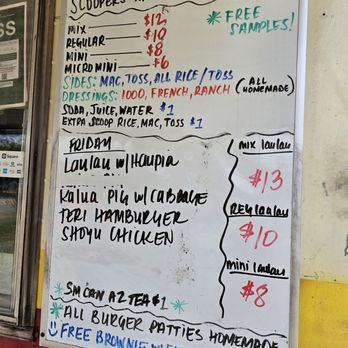 SCOOPERS
MIX $12
REGULAR $10
MINI $8
MICRO MINI $6
* FREE
SAMPLES!
SIDES: MAC, TOSS, ALL RICE / TOSS
DRESSINGS: 1000, FRENCH, RANCH (ALL HOMEMADE)
SODA, JUICE, WATER $1
EXTRA SCOOP RICE, MAC, TOSS $1
FRIDAY
Laulau w/ Haupia
KALUA PIG W/ CABBAGE
TERI HAMBURGER
SHOYU CHICKEN
mix laulau
$13
Reg laulau
$10
mini laulau
$8
* SM CAN AZ TEA $1 *
* ALL BURGER PATTIES HOMEMADE
FREE BROWNIE
SS
Square